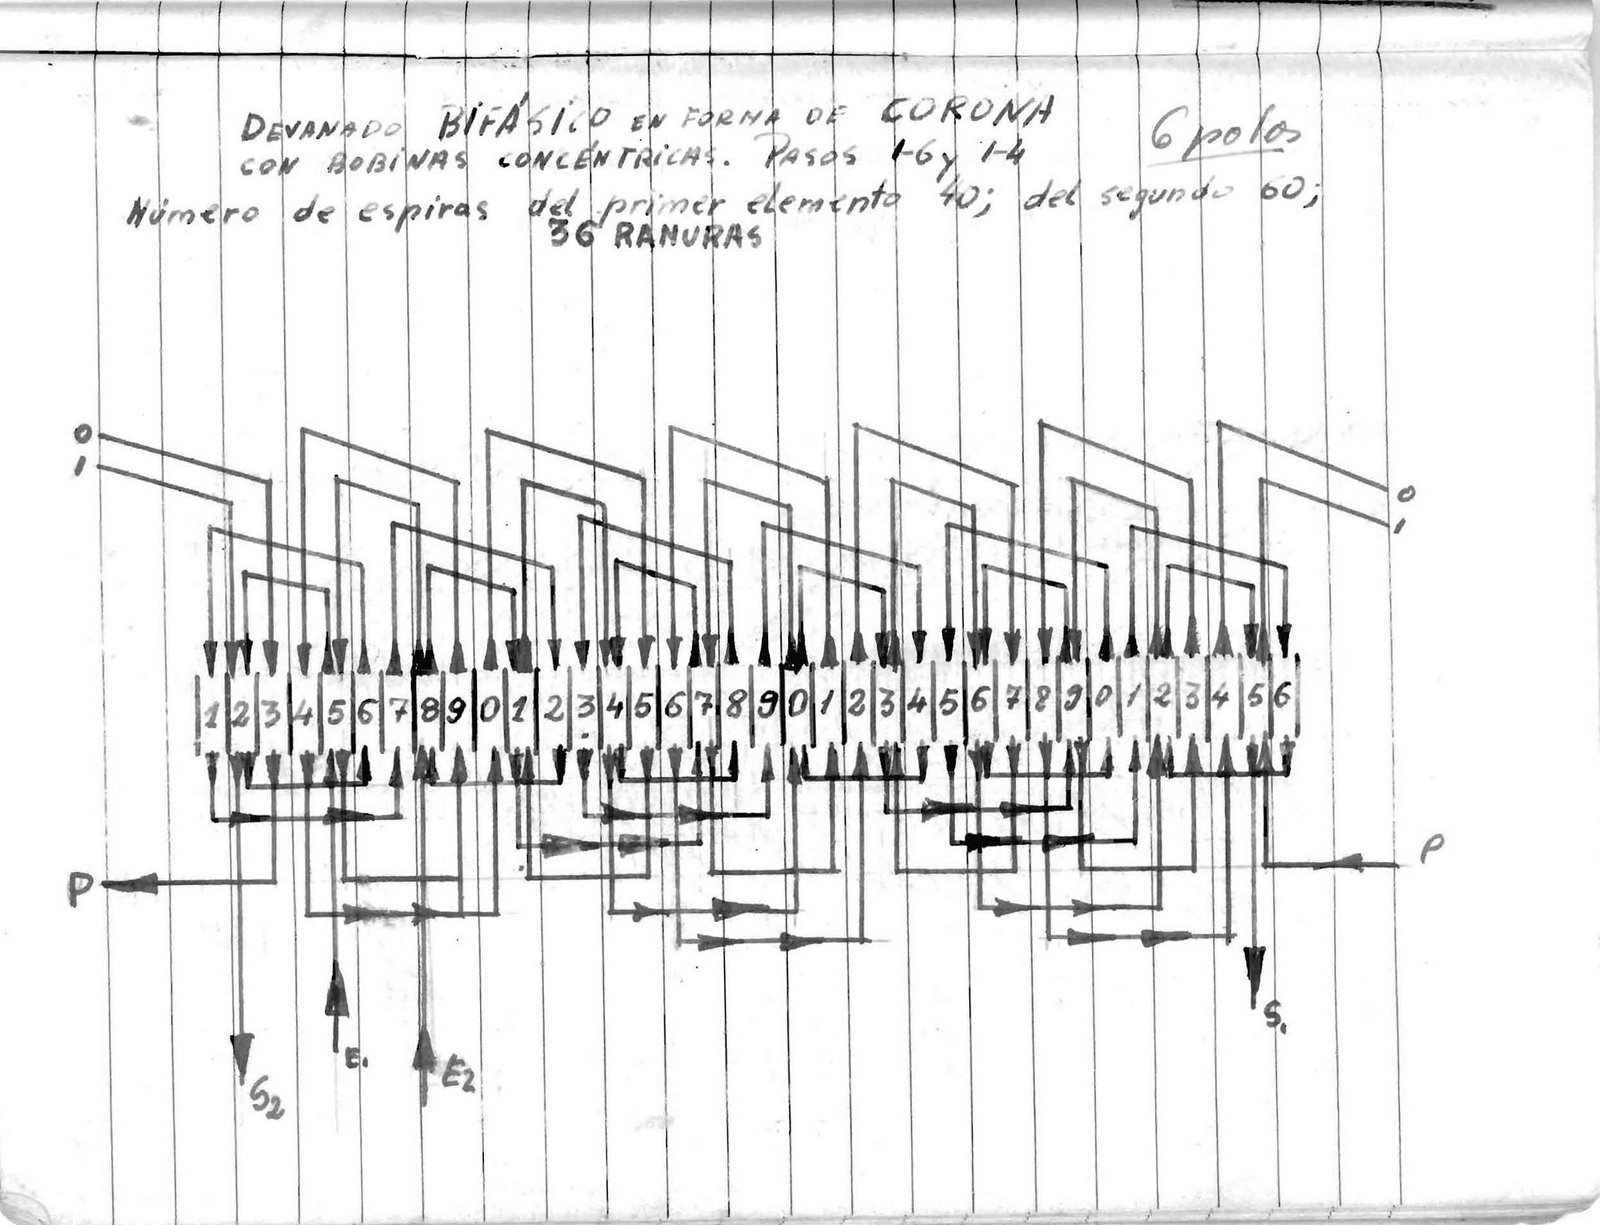 DEVANADO BIFÁSICO EN FORMA DE CORONA
CON BOBINAS CONCÉNTRICAS. PASOS 1-6 y 1-4
6 polos
Número de espiras del primer elemento 40; del segundo 60;
36 RANURAS
0
1
0
1
1 2 3 4 5 6 7 8 9 0 1 2 3 4 5 6 7 8 9 0 1 2 3 4 5 6 7 8 9 0 1 2 3 4 5 6
P
P
S1
E1
E2
S2